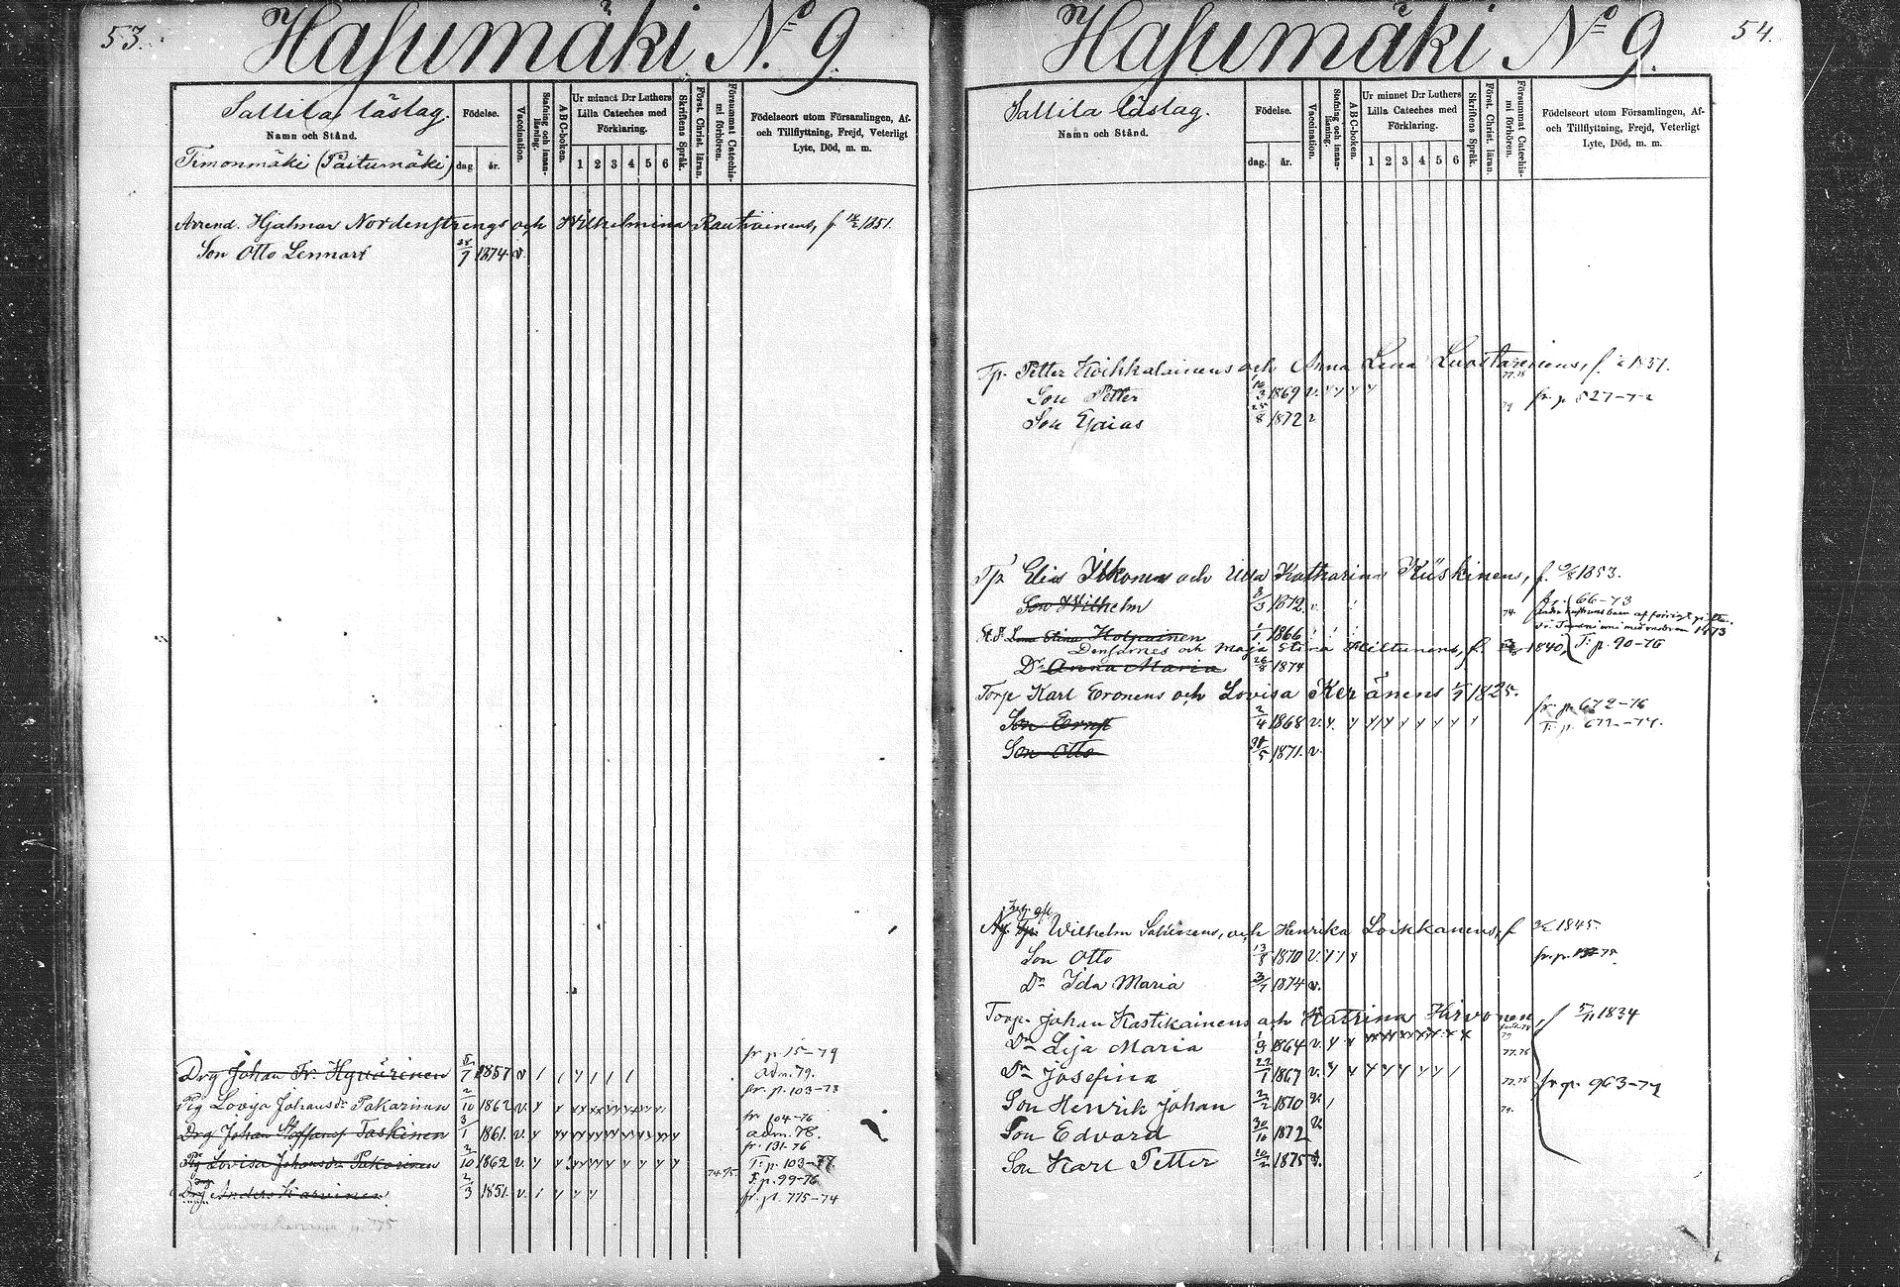 53.
Hasumäki N:o 9.
Sallila läslag.
Namn och Stånd.
Timonmäki (Päiturmäki)
Födelse.
dag.
år.
Vaccination.
Stafning och innan-läsning.
ABC-boken.
Ur minnet D:r Luthers
Lilla Cateches med
Förklaring.
1 2 3 4 5 6
Skriftens Språk.
Först. Christ. läran.
Försummat Catechis-mi förhören.
Födelseort utom Församlingen, Af-
och Tillflyttning, Frejd, Veterligt
Lyte, Död, m. m.
Arrend. Hjalmar Nordenstrengs och Wilhelmina Rautiainens, f 1851.
Son Otto Lennart 28/7 1874 v.
fr. p. 15-79
Drg Johan Fr. Hyvärinen 1857 v
adm. 79.
fr. p. 103-73
Pig Lovisa Johansdr Pakarinen 2/10 1862 v.
fr 104-76
Drg Johan Staffanss Taskinen 3/1 1861. v.
adm. 78.
fr. 131-76
Pig Lovisa Johansdr Pakarinen 2/10 1862 v.
T: p. 103-77
T: p. 99-76
Drg Anders Karvinen 2/3 1851. v.
fr. p. 775-74
54.
Hasumäki N:o 9.
Sallila läslag.
Namn och Stånd.
Födelse.
dag.
år.
Vaccination.
Stafning och innan-läsning.
ABC-boken.
Ur minnet D:r Luthers
Lilla Cateches med
Förklaring.
1 2 3 4 5 6
Skriftens Språk.
Först. Christ. läran.
Försummat Catechis-mi förhören.
Födelseort utom Församlingen, Af-
och Tillflyttning, Frejd, Veterligt
Lyte, Död, m. m.
Tp. Petter Koikkalainens och Anna Lena Luostarinens, f. 1831.
Son Petter 10/3 1869 v. fr. p. 827-72
Son Esaias 25/8 1872 v
Tp. Elias Ikonens och Ulla Katharina Kiiskinens, f. 1853.
Son Wilhelm 8/3 1872. v. 74. fr. p. 66-73
Lena Stina Holopainen 1/1 1866
Densammes och Maja Stina Hiltunens, f. 1840, T: p. 90-76
Dr Anna Maria 26/8 1874
Torp. Karl Eronens och Lovisa Keränens 1825.
fr. p. 672-76
Son Ernst 2/4 1868 v. T: p. 672-74.
Son Otto 1871. v.
Wilhelm Sahinens, och Henrika Loikkanens, f 1845.
Son Otto 13/8 1870 v.
Dr Ida Maria 1874 v.
Torp. Johan Kastikainens och Katrina Hirvonen, f 5/11 1834
Dr Lisa Maria 1/9 1864 v.
Dr Josefina 22/1 1867 v. 77.78 fr. p. 963-72
Son Henrik Johan 2/2 1870
Son Edvard 30/10 1872
Son Karl Petter 1875